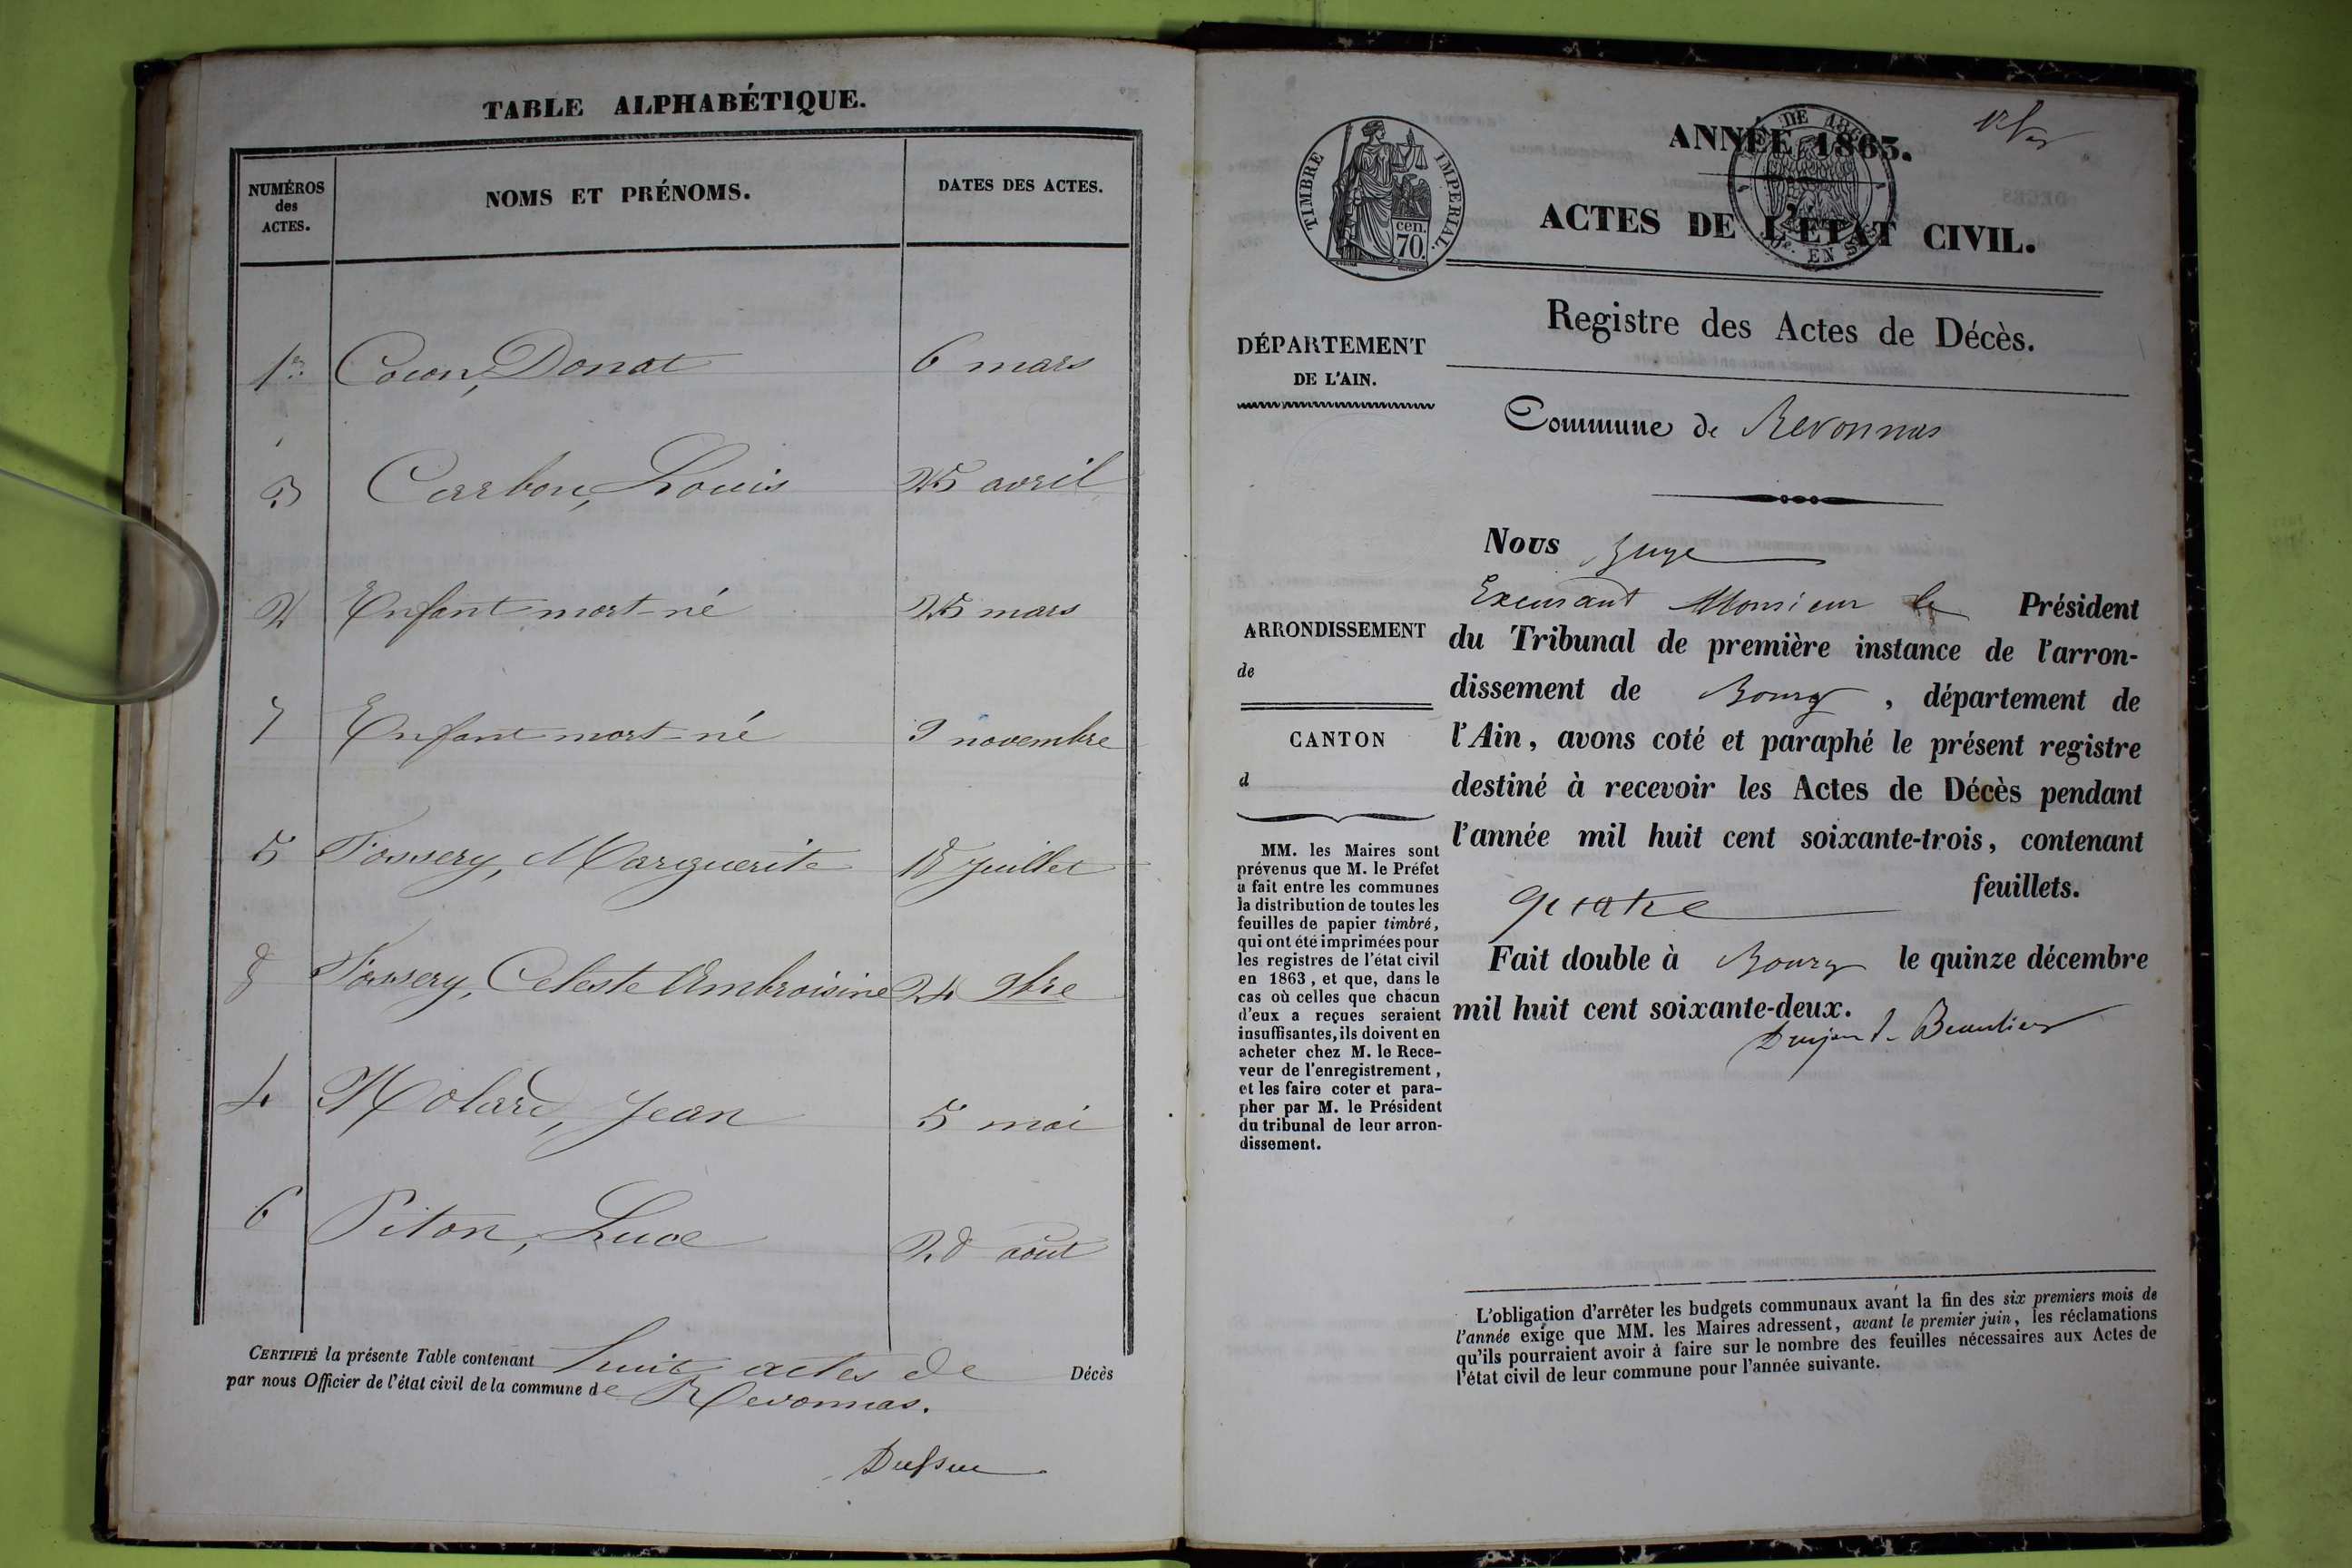 TABLE ALPHABÉTIQUE.
NUMÉROS des ACTES. NOMS ET PRÉNOMS. DATES DES ACTES.
1er Donat 6 mars
3 Carbon, Louis 25 avril
2 Enfant mort-né 25 mars
7 Enfant mort-né 9 novembre
5 Marguerite 18 Juillet
8 Celeste Ambroisine 24 9bre
4 Molard, Jean 5 mai
6 Piton, Luce 28 aout
CERTIFIÉ la présente Table contenant huit actes de Décès
par nous Officier de l'état civil de la commune de Revonnas.
ANNÉE 1863.
ACTES DE L'ÉTAT CIVIL.
TIMBRE IMPERIAL.
cen.
70.
Registre des Actes de Décès.
DÉPARTEMENT
DE L'AIN.
Commune de Revonnas
ARRONDISSEMENT
de
CANTON
d
MM. les Maires sont
prévenus que M. le Préfet
a fait entre les communes
la distribution de toutes les
feuilles de papier timbré,
qui ont été imprimées pour
les registres de l'état civil
en 1863, et que, dans le
cas où celles que chacun
d'eux a reçues seraient
insuffisantes, ils doivent en
acheter chez M. le Rece-
veur de l'enregistrement,
et les faire coter et para-
pher par M. le Président
du tribunal de leur arron-
dissement.
Nous Juge
Excusant Monsieur le Président
du Tribunal de première instance de l'arron-
dissement de Bourg, département de
l'Ain, avons coté et paraphé le présent registre
destiné à recevoir les Actes de Décès pendant
l'année mil huit cent soixante-trois, contenant
quatre feuillets.
Fait double à Bourg le quinze décembre
mil huit cent soixante-deux.
L'obligation d'arrêter les budgets communaux avant la fin des six premiers mois de
l'année exige que MM. les Maires adressent, avant le premier juin, les réclamations
qu'ils pourraient avoir à faire sur le nombre des feuilles nécessaires aux Actes de
l'état civil de leur commune pour l'année suivante.